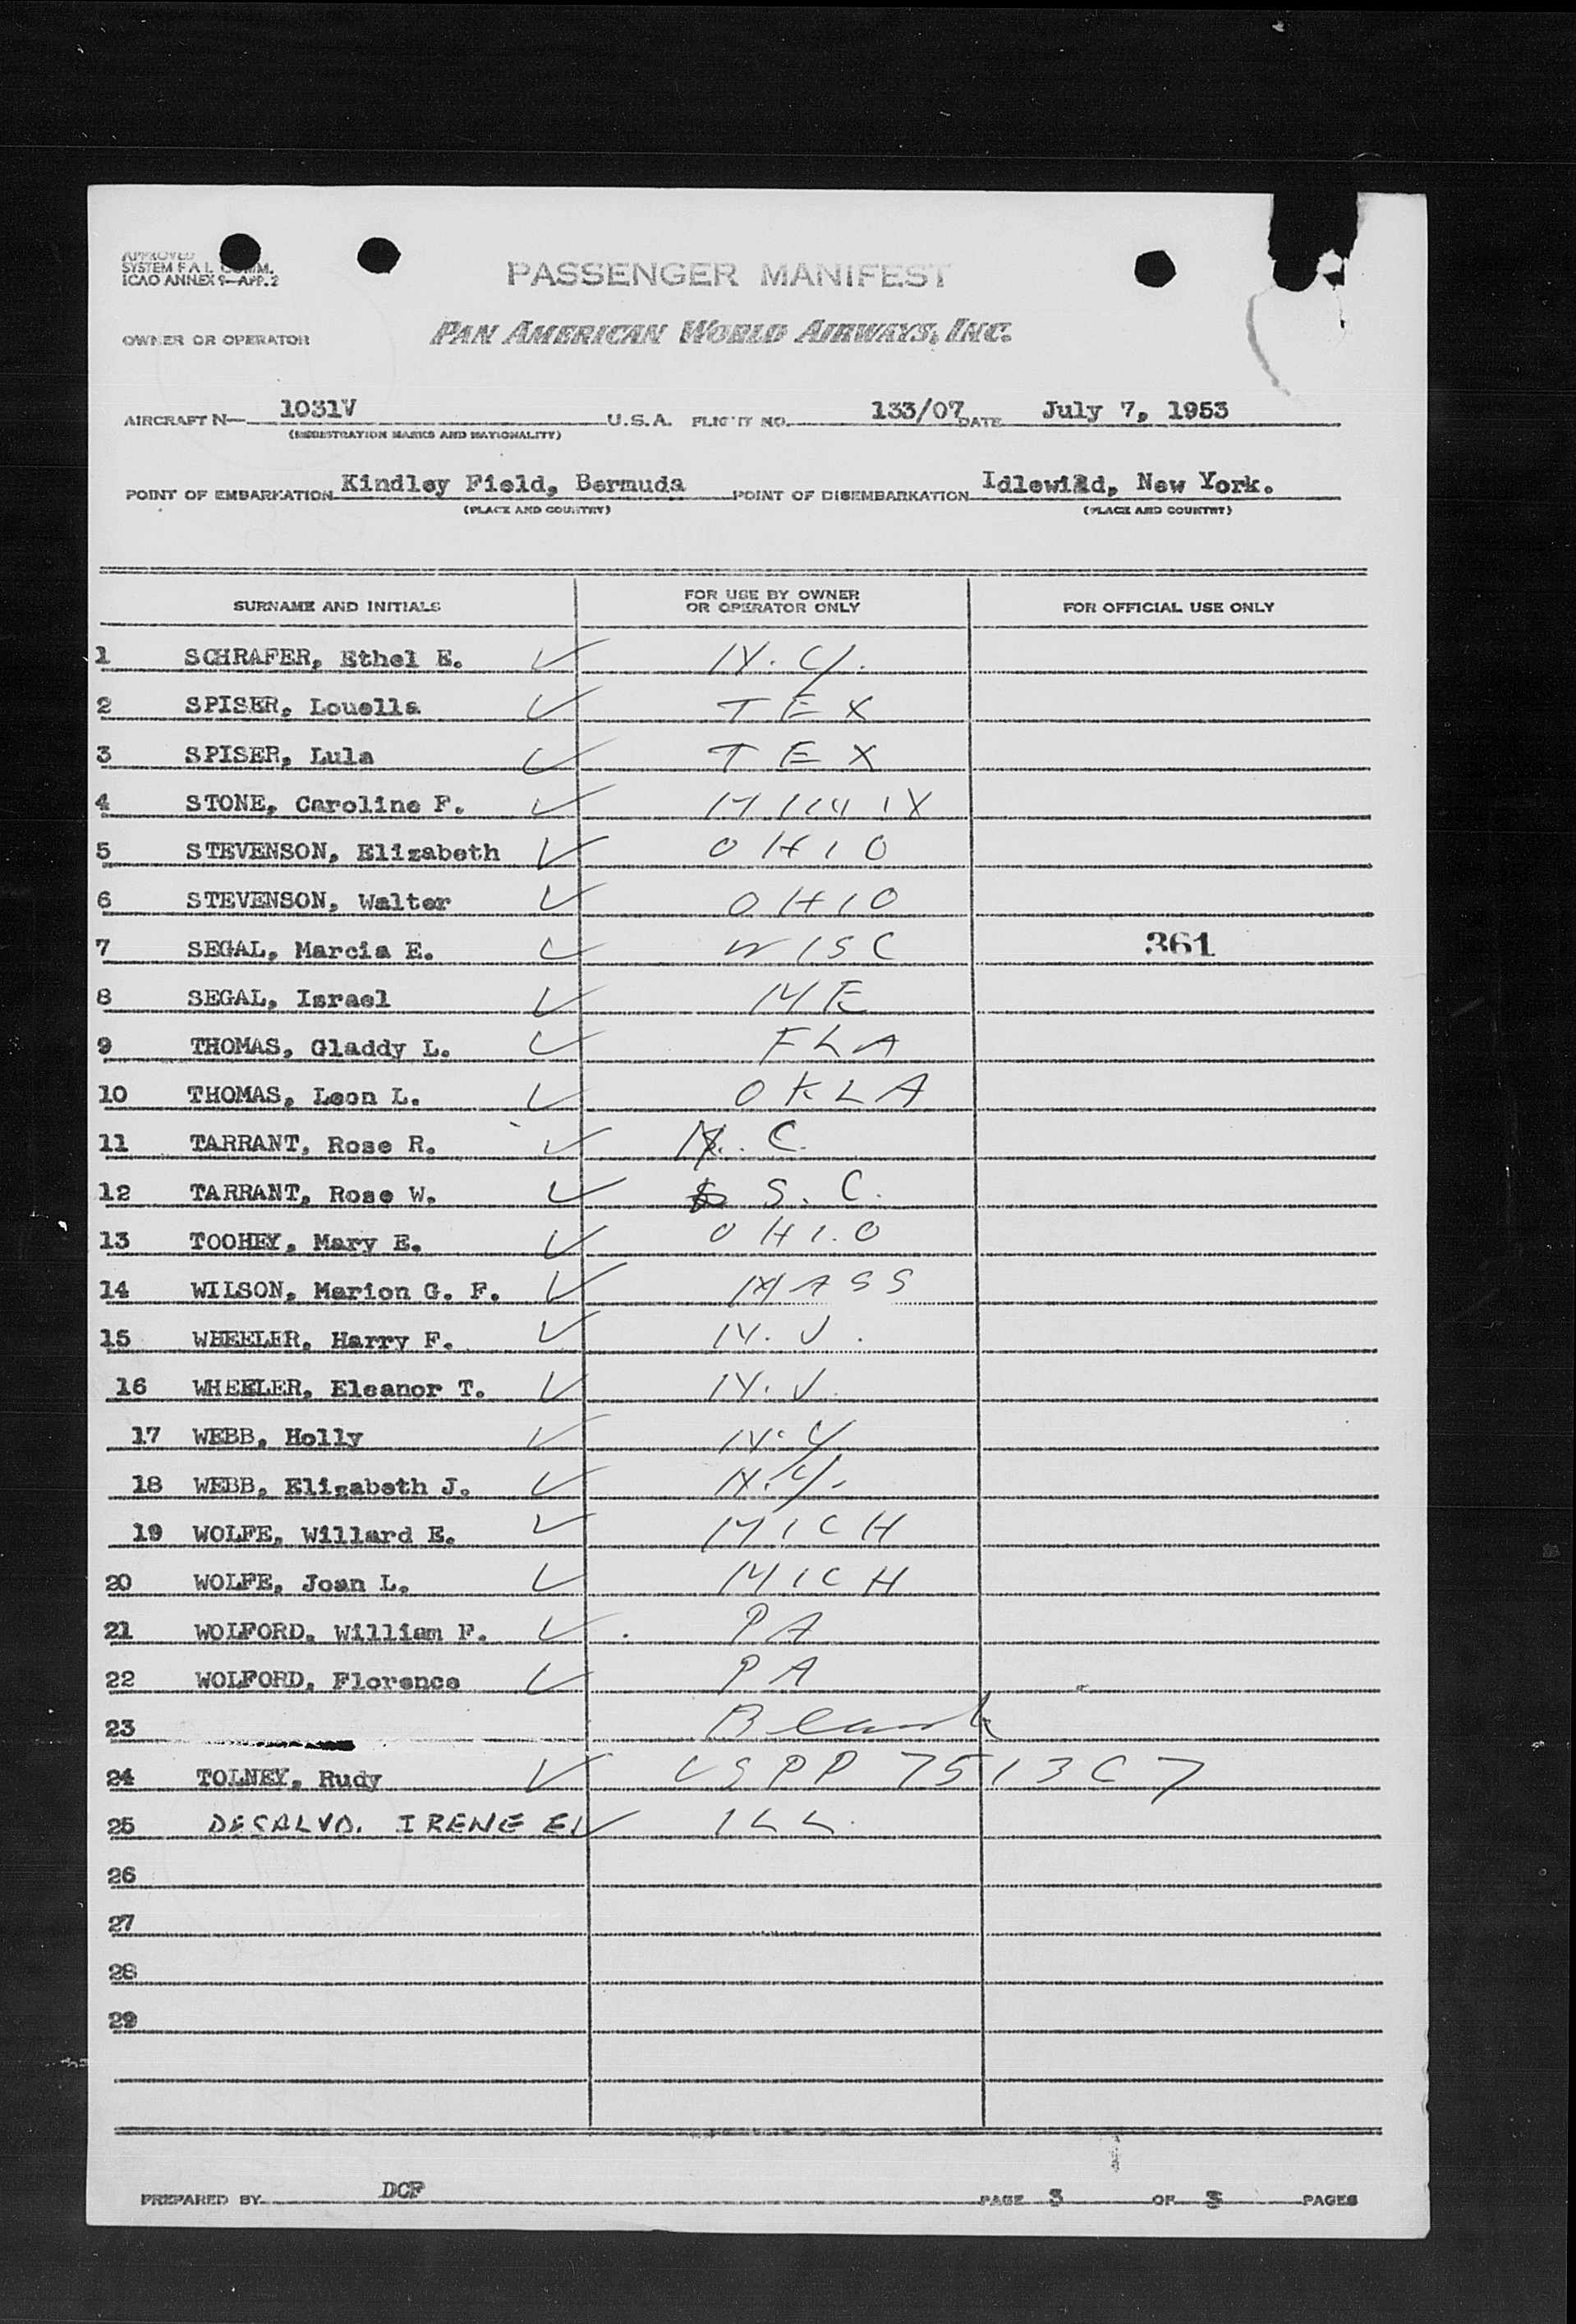 APPROVED
SYSTEM F A L COMM.
ICAO ANNEX 9-APP. 2
PASSENGER MANIFEST
OWNER OR OPERATOR PAN AMERICAN WORLD AIRWAYS, INC.
AIRCRAFT N- 1031V U.S.A. FLIGHT NO. 133/07 DATE July 7, 1953
(REGISTRATION MARKS AND NATIONALITY)
POINT OF EMBARKATION Kindley Field, Bermuda POINT OF DISEMBARKATION Idlewild, New York.
(PLACE AND COUNTRY) (PLACE AND COUNTRY)
SURNAME AND INITIALS FOR USE BY OWNER OR OPERATOR ONLY FOR OFFICIAL USE ONLY
1 SCHRAFER, Ethel E. ✓ N.Y.
2 SPISER, Louella ✓ TEX
3 SPISER, Lula ✓ TEX
4 STONE, Caroline F. ✓
5 STEVENSON, Elizabeth ✓ OHIO
6 STEVENSON, Walter ✓ OHIO
7 SEGAL, Marcia E. ✓ WISC 361
8 SEGAL, Israel ✓ ME
9 THOMAS, Gladdy L. ✓ FLA
10 THOMAS, Leon L. ✓ OKLA
11 TARRANT, Rose R. ✓ N. C.
12 TARRANT, Rose W. ✓ S. C.
13 TOOHEY, Mary E. ✓ OHIO
14 WILSON, Marion G. F. ✓ MASS
15 WHEELER, Harry F. ✓ N. J.
16 WHEELER, Eleanor T. ✓ N. J.
17 WEBB, Holly ✓ N.Y
18 WEBB, Elizabeth J. ✓ N.Y.
19 WOLFE, Willard E. ✓ MICH
20 WOLFE, Joan L. ✓ MICH
21 WOLFORD, William F. ✓ PA
22 WOLFORD, Florence ✓ PA
23 Blank
24 TOLNEY, Rudy ✓ USPP 7513C7
25 DESALVO, IRENE E ✓ ILL
26
27
28
29
PREPARED BY DCF PAGE 3 OF 3 PAGES